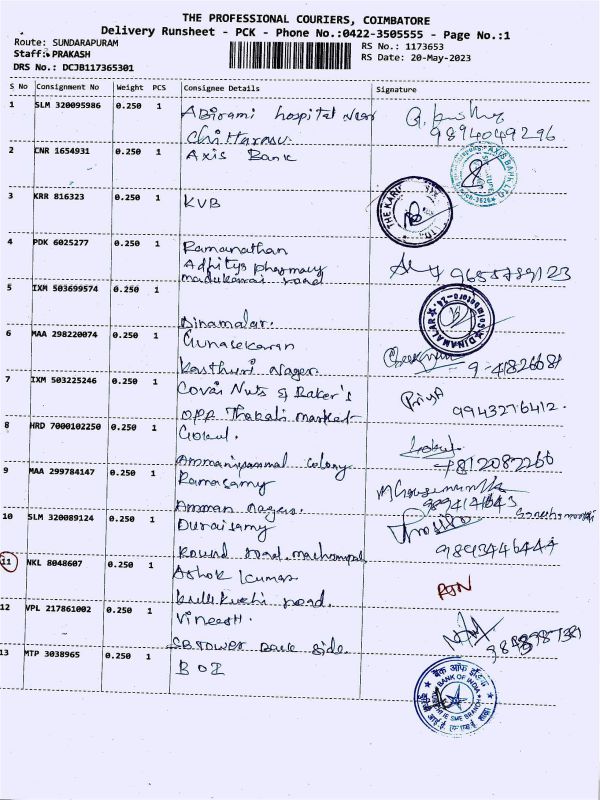 THE PROFESSIONAL COURIERS, COIMBATORE
Delivery Runsheet - PCK - Phone No.:0422-3505555 - Page No.:1
Route: SUNDARAPURAM
RS No.: 1173653
Staff: PRAKASH
RS Date: 20-May-2023
DRS No.: DCJB117365301
S No Consignment No Weight PCS Consignee Details Signature
1 SLM 320095986 0.250 1 Abirami hospital near
9894049296
Chittarasu.
2 CNR 1654931 0.250 1 Axis Bank
AXIS BANK LTD
3 KRR 816323 0.250 1 KVB
THE KARU
4 PDK 6025277 0.250 1 Ramanathan
Adhitya pharmacy
madukarai road
9655789123
5 IXM 503699574 0.250 1
Dinamalar.
DINAMALAR
6 MAA 298220074 0.250 1 Gunasekaran
Kasthuri Nagar.
7 IXM 503225246 0.250 1 Covai Nuts & Baker's
Priya
OPP Thakali market
9943276412.
8 HRD 7000102250 0.250 1 Gokul.
Gokul
Ammaniyammal colony
7812082260
9 MAA 299784147 0.250 1 Ramasamy
Amman nagar.
10 SLM 320089124 0.250 1 Duraisamy
Round road
9893446444
11 NKL 8048607 0.250 1 Ashok kumar
RTN
road.
12 VPL 217861002 0.250 1 Vineesh.
SB Tower Back side.
13 MTP 3038965 0.250 1 BOI
बैंक ऑफ इंडिया
BANK OF INDIA
SME BRANCH